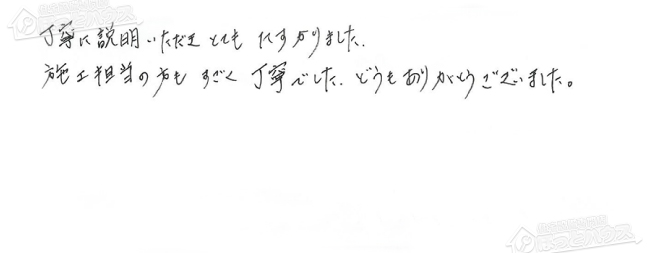 丁寧に説明いただきとてもたすかりました.
施工担当の方もすごく丁寧でした. どうもありがとうございました。